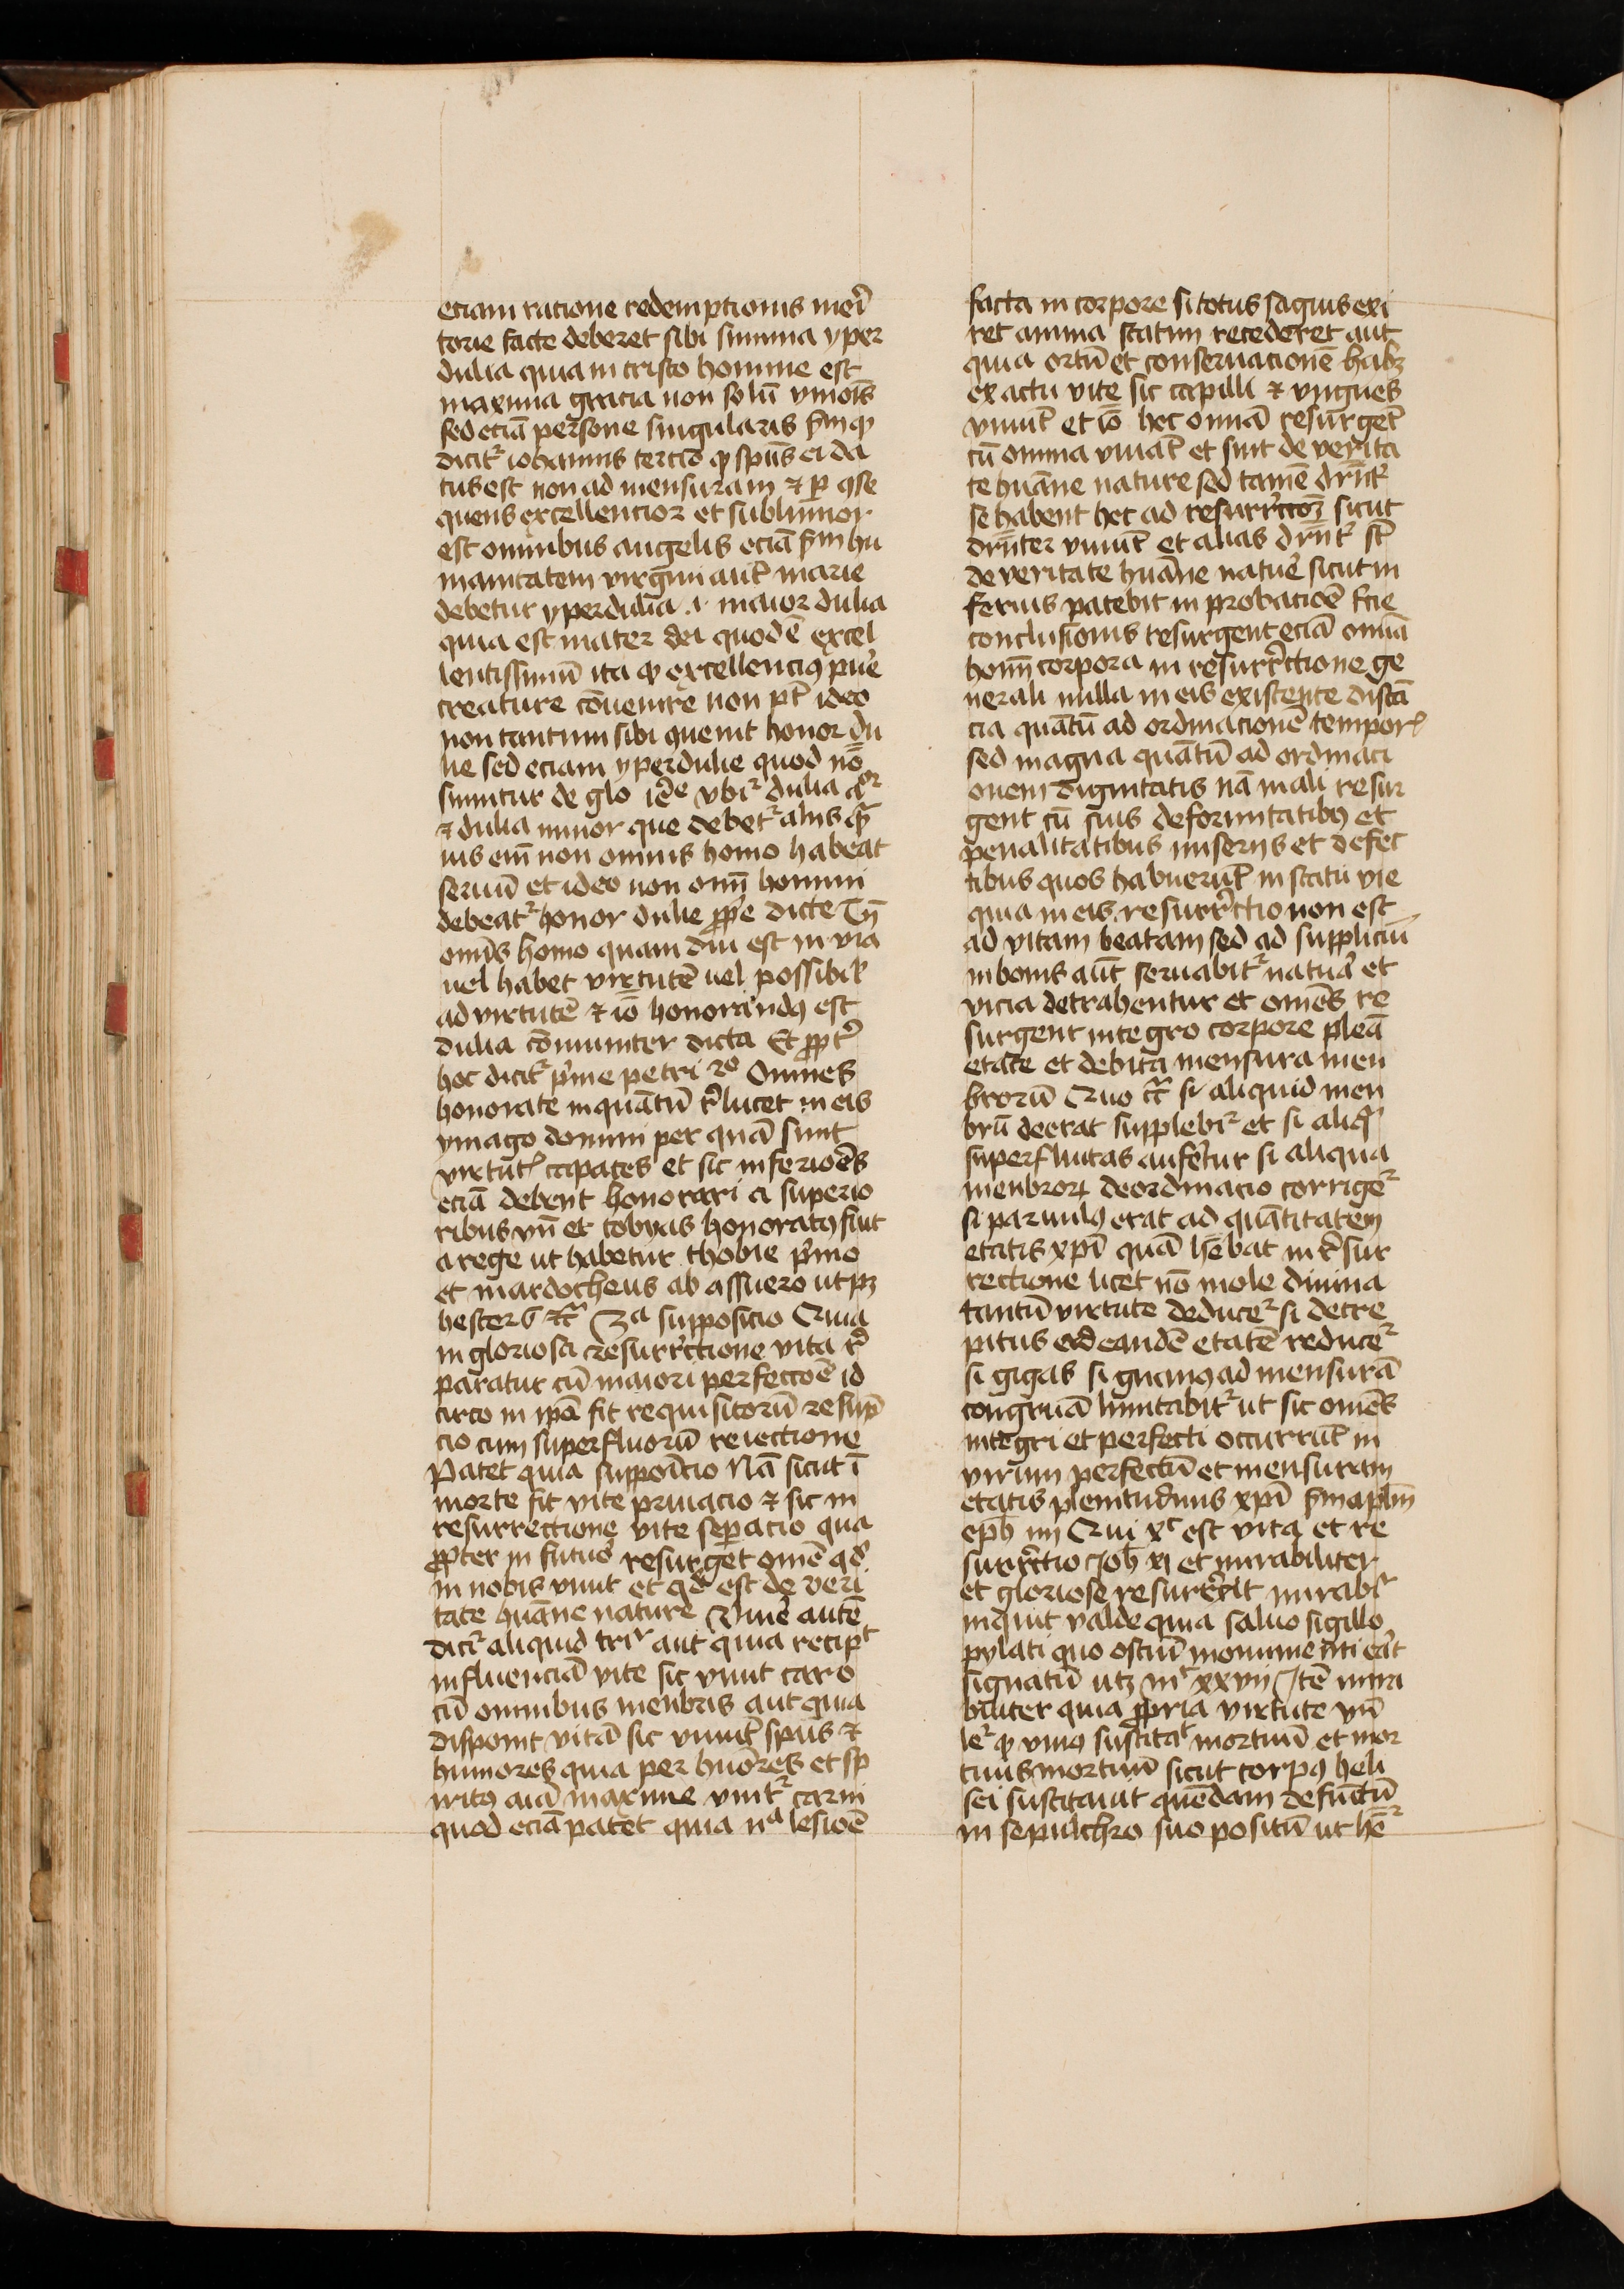 eciam racione redemptionis meri͛
torie facte deberet sibi summa yper
dulia quia in cristo homine est
maxima gracia non solū vniois̄
sed eciā persone singularis s̄m qͥ
dicitʳ iohannis tercio qͥ spūs ei da
tus est non ad mensuram ⁊ ꝑ ꝯse
quens excellencior et sublimior
est omnibus angelis eciā s̄m hu
manitatem virgini aut̄ marie
debetur yperdulia .i. maior dulia
quia est mater dei quod ē excel
lentissimū ita ꝙ excellenciꝰ pur͛e
creature cōuenire non pt̄ ideo
non tantum sibi ꝯuenit honor du
lie sed eciam yperdulie quod nō
sumitur de glo
⁊ dulia minor que debetʳ aliis
uis em̄ non omnis homo habeat
seruū et ideo non om̄i homini
debeatʳ honor dulie ꝓpͥe dicte Tn̄
omīs homo quam diu est in via
uel habet virtutē uel possibil͛
ad virtutē ⁊ iō honorandꝰ est
dulia cōmuniter dicta Et ꝓpt͛
hoc dicitʳ p͛me petri 2º Omnes
honorate inquātū r͛lucet in eis
ymago domini per quā sunt
virtut͛ capaces et sic inferioēs
eciā debent honorari a superio
ribus vn̄ et tobyas honoratꝰ fuit
a rege ut habetur thobie p͛mo
et mardocheus ab assuero ut pʒ
hester 6 ⁊c͛ 3ª supposicio Quia
in gloriosa resurr͛ctione vita r͛
paratur cū maiori perfectoē id
circo in ipā fit requisitorū resūp
cio cum superfluorū reiectione
Patet quia suppōicio Nā sicut ī
morte fit vite priuacio ⁊ sic in
resurrectione vite seꝑacio qua
ꝓpter in futur͛o resurget omē qd͛
in nobis viuit et qd͛ est de veri
tate huāne nature Viuer͛e autē
dicʳ aliquid tr͛ aut quia recipᵗ
influenciā vite sic viuit caro
cū omnibus menbris aut quia
disponit vitā sic viuūt spūs ⁊
humores quia per huōres et sp̄
iritꝰ aīa maxime vnitʳ carni
quod eciā patet quia nᵃ lesioē
facta in corpore si totus sāguis exi
ret anima statim recederet aut
quia ortū et conseruacionē habʒ
ex actu vite sic capilli ⁊ vngues
viuūt et iō hec omīa resurgēt
cū omnia viuāt et sint de verita
te huāne nature sed tamē dr̄nt͛
se habent hec ad resurr͛ctōʒ sicut
dr̄nter viuūt et alias dr̄nt͛ st̄
de veritate huāne natur͛e sicut in
ferius patebit in probacioē s͛cie
conclusionis resurgent eciā omīa
hoīm corpora in resurr͛ctione ge
nerali nulla in eis existente distā
cia quātū ad ordinacionē temporꝭ
sed magna quātū ad ordinaci
onem dignitatis nā mali resur
gent cū suis deformitatibꝰ et
penalitatibus miseriis et defec
tibus quos habuerūt in statu vie
quia in eis resurr͛ctio non est
ad vitam beatam sed ad suppliciū
in bonis aūt seruabitʳ natur͛a et
vicia detrahentur et omēs re
surgent integro corpore pleā
etate et debita mensura men
brorū Quo c͛ si aliquid men
brū deerat supplebʳ et si aliq͛
superfluitas aufertur si aliqua
menbroꝝ deordinacio corrigeʳ
si paruulꝰ erat ad quātitatem
etatis xp̄i quā hēbat in r͛sur
rectione licet nō mole diuina
tantū virtute deduceʳ si decre
pitus ad eandē etatē reduceʳ
si gigas si gnanꝰ ad mensurā
congruā limitabitʳ ut sic omēs
integri et perfecti occurrūt in
virum perfectū et mensuram
etatis plenitudinis xp̄i s̄m apl̄m
eph̄ iiij Qui xᶜ est vita et re
surr͛ctio Joh̄ xi et mirabiliter
et gloriose resurr͛xit mirabʳ
inquit valde quia saluo sigillo
pylati quo ostiū monumenti er͛at
signatū utʒ mᵗ xxvii Itē mira
biliter quia ꝓpria virtute vn̄
leʳ ꝙ viuꝰ suscitat͛ mortuū et mor
tuus mortuū sicut corpꝰ heli
sei suscitauit quēdam defūctū
in sepulchro suo positū ut hēʳ